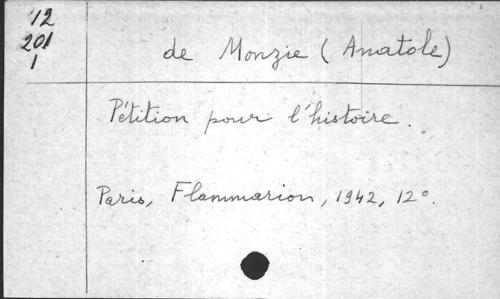 12
201
1
de Monzie (Anatole)
Pétition pour l'histoire.
Paris, Flammarion, 1942, 12°.